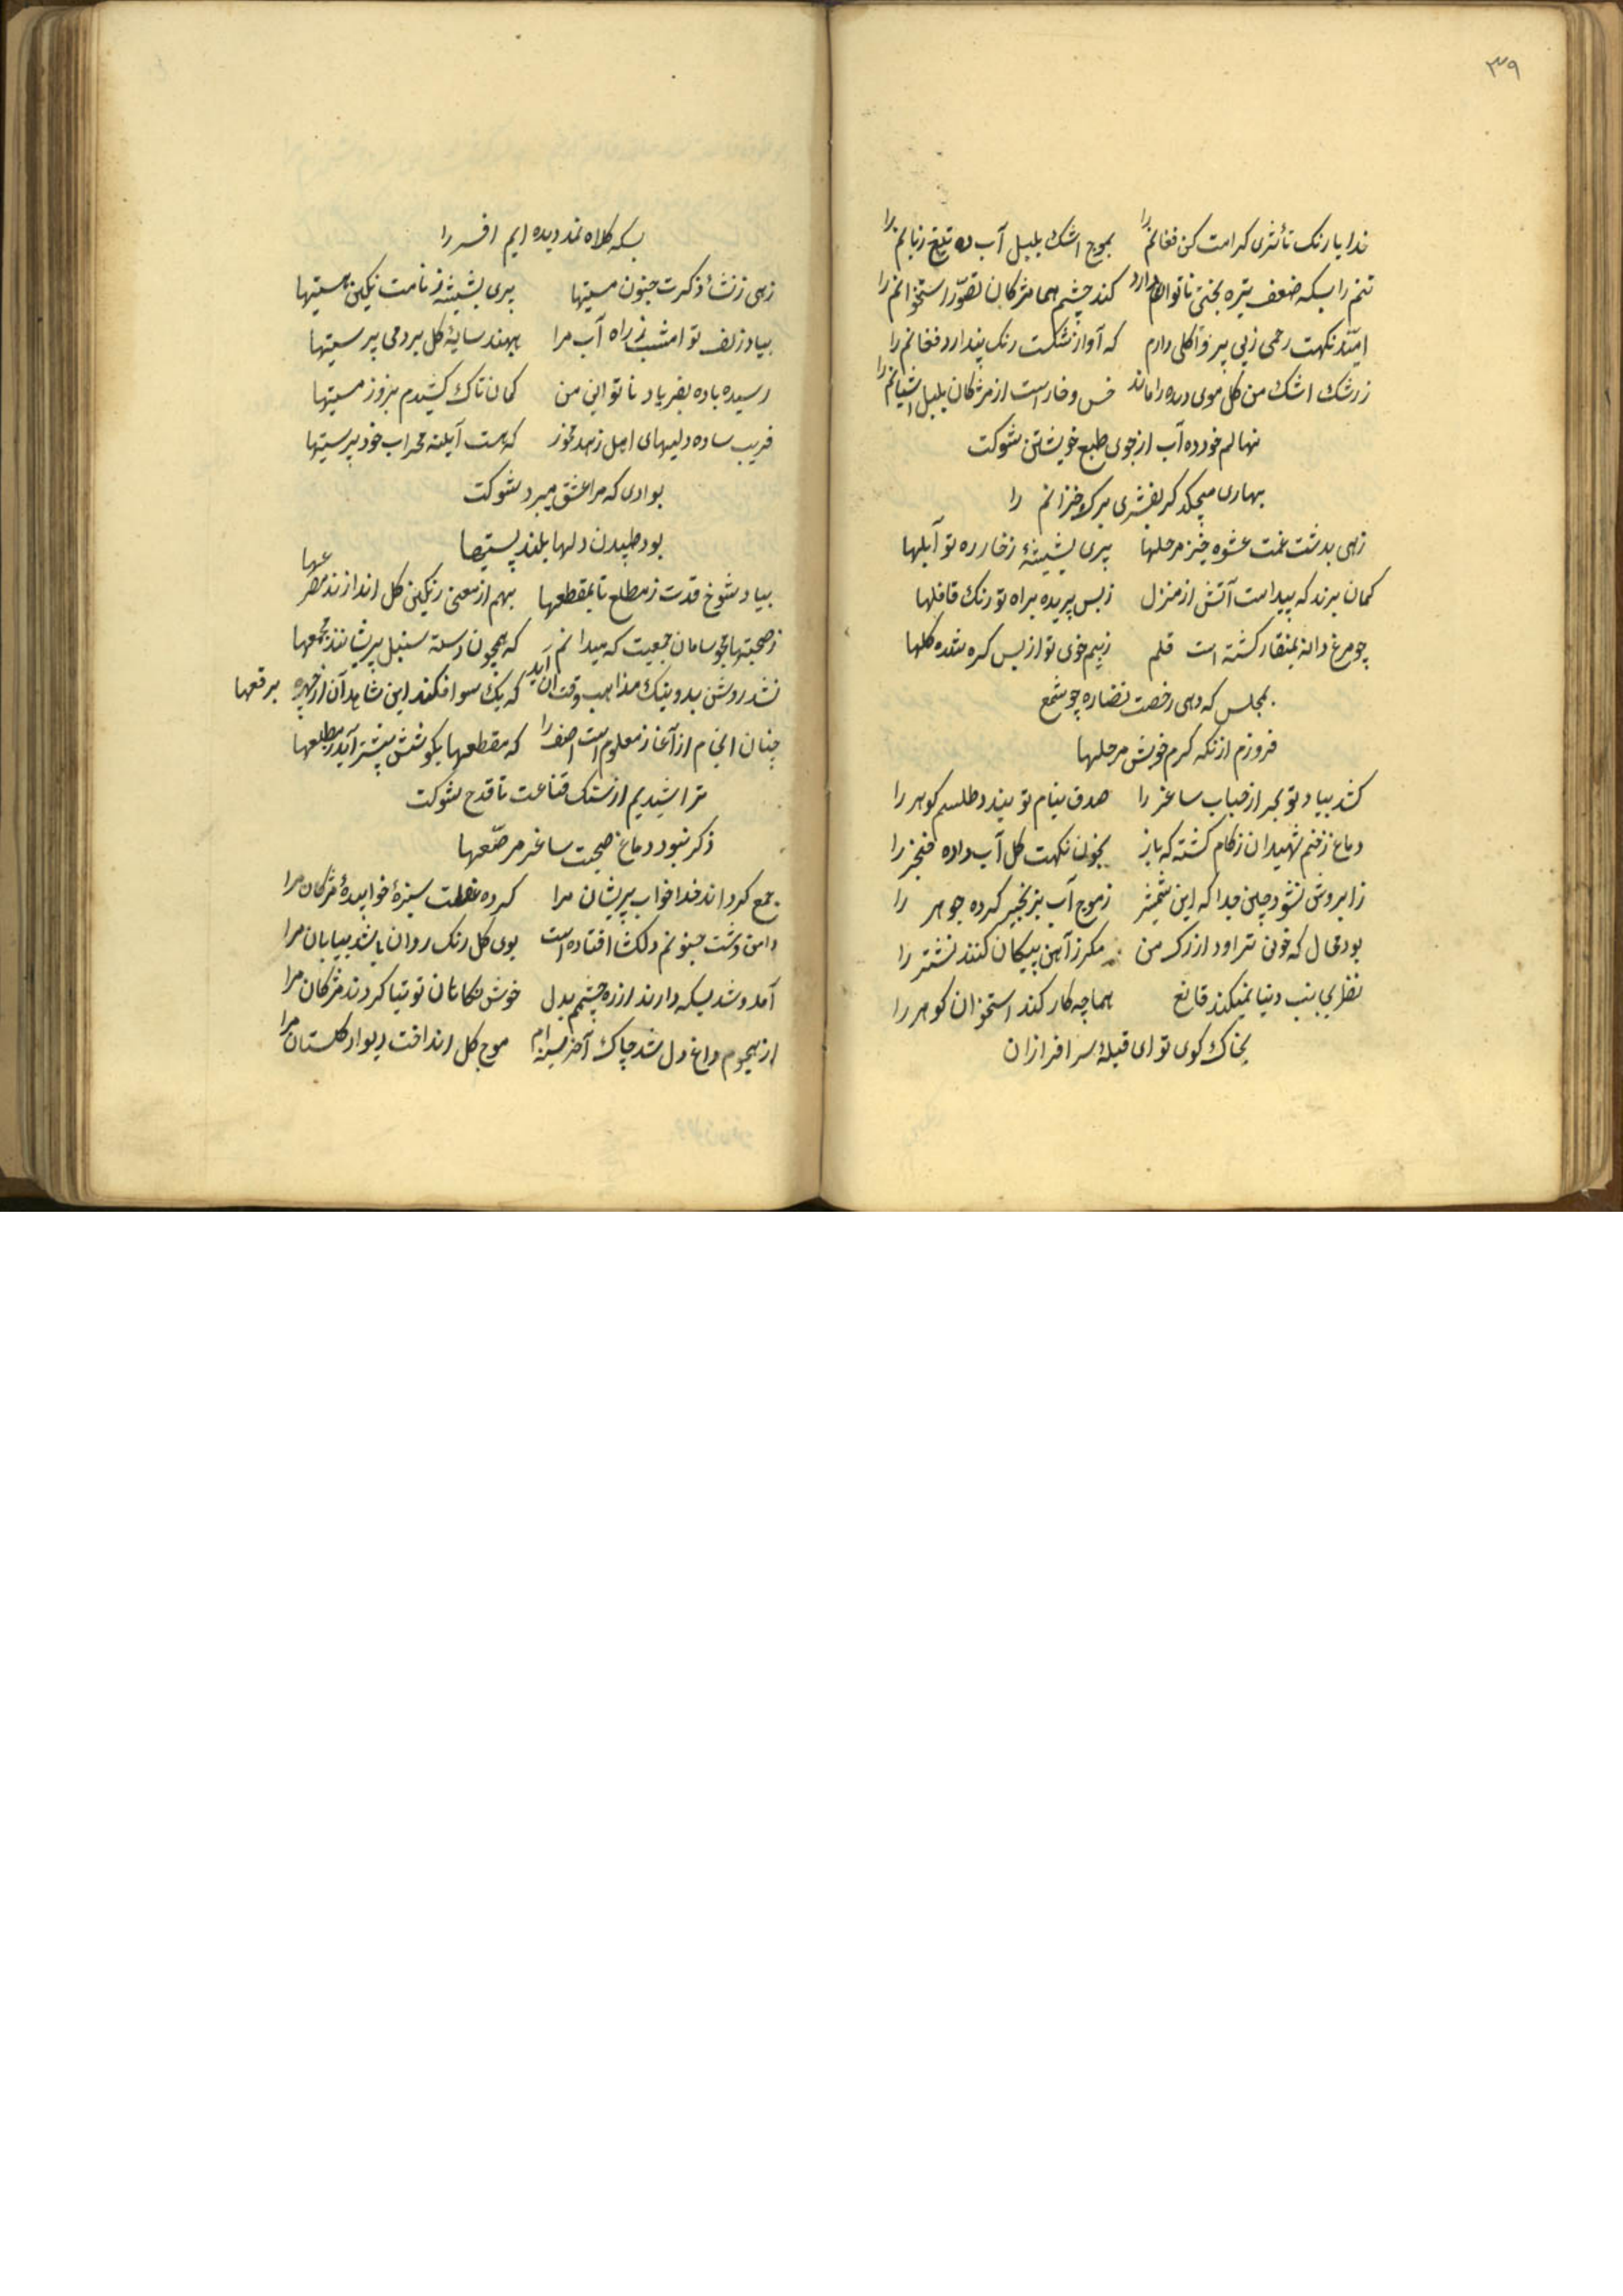 ۳۹
خدایا رنک تأثری کرامت کن فغانم را بموج اشک بلبل آب ده تیغ زبانم را
تنم را بسکه ضعف تیره بختی ناتوان دارد کند چشم هما مژکان تصوّر استخوانم را
امید نکهت رحمی زبی پروا کلی دارم که آواز شکست رنک پندارد فغانم را
زرشک اشک من کل موی دیده را ماند خس و خار است از مژکان بلبل آشیانم را
نهالم خورده آب از جوی طبع خویشتن شوکت
بهاری میچکد کر بفشری برک خزانم را
زهی بدشت غمت عشوه خیز مرحلها پری بشیشهٔ زخار ره تو آبلها
کمان برند که پیداست آتش از منزل زبس پریده براه تو رنک قافلها
چو مرغ دانه بمنقار کشته است قلم زبیم خوی تو از بس کره شده کلها
بمجلس که دهی رخصت نضاره چو شمع
فروزم از نکه کرم خویش مرحلها
کشد بیاد تو بحر از حباب ساغر را صدف بنام تو بندد طلسم کوهر را
دماغ زخم شهیدان زکام کشته که باز بخون نکهت کل آب داده خنجر را
زابروش نشود چین جدا که این شمشیر زموج آب بزنجیر کرده جوهر را
بود محال که خون تراود از رک من مکر زآهن پیکان کنند نشتر را
نظر بجانب دنیا نمیکند قانع هما چه کار کند استخوان کوهر را
بخاک کوی تو ای قبلهٔ سرافرازان
بسکه کلاه نمد دیده ایم افسر را
زهی زنشأ ذکرت جنون مستیها پری بشیشه زنامت نکین هستیها
بیاد زلف تو امشب زراه آب مرا بهند سایهٔ کل برد می پرستیها
رسیده باده بفریاد ناتوانی من کمان تاک کشیدم بزور مستیها
فریب ساده دلیهای اهل زهد مخور که هست آینه محراب خودپرستیها
بوادی که مرا عشق میبرد شوکت
بود طپیدن دلها بلند پستیها
بیاد شوخ قدت زمطلع تا بمقطعها بهم از معنی رنکین کل اندازند مصرعها
زصحبتها مجو سامان جمعیت که میدانم که همچون دسته سنبل پریشانند مجمعها
نشد روشن بدونیک مذاهب وقت آن آید که یک سو افکند این شاهد آن از چهره برقعها
چنان انجام از آغاز معلوم است آصف را که مقطعها بکوشش پیشتر آید زمطلعها
تراشیدیم از سنک قناعت تا قدح شوکت
ذکر نبود دماغ صحبت ساغر مرصّعها
جمع کرداند خدا خواب پریشان مرا کرده غفلت سبزهٔ خوابیدهٔ مژکان مرا
دامن دشت جنونم دلکشا افتاده است بوی کل رنک روان باشد بیابان مرا
آمد و شد بسکه دارند از ره چشمم بدل خوش نکاهان توتیا کردند مژکان مرا
از هجوم داغ دل شد چاک آخر سینه ام موج کل انداخت دیوار کلستان مرا